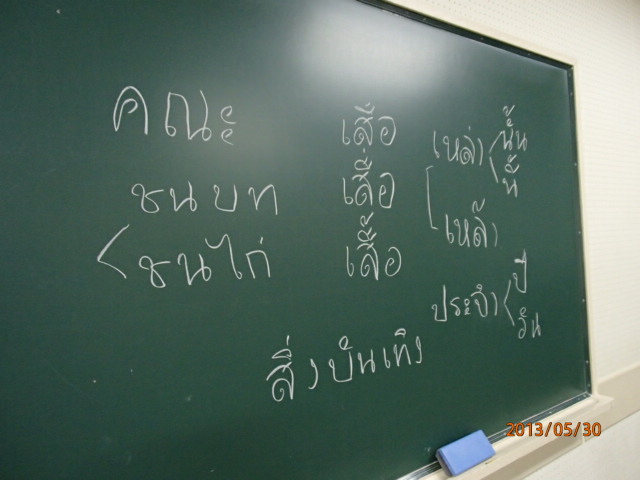 คณะ
ชนบท
ชนไก่
เสือ
เสื่อ
เสื้อ
เหล่า นั้น
นี้
เหล้า
ประจำ ปี
วัน
สิ่งบันเทิง
2013/05/30